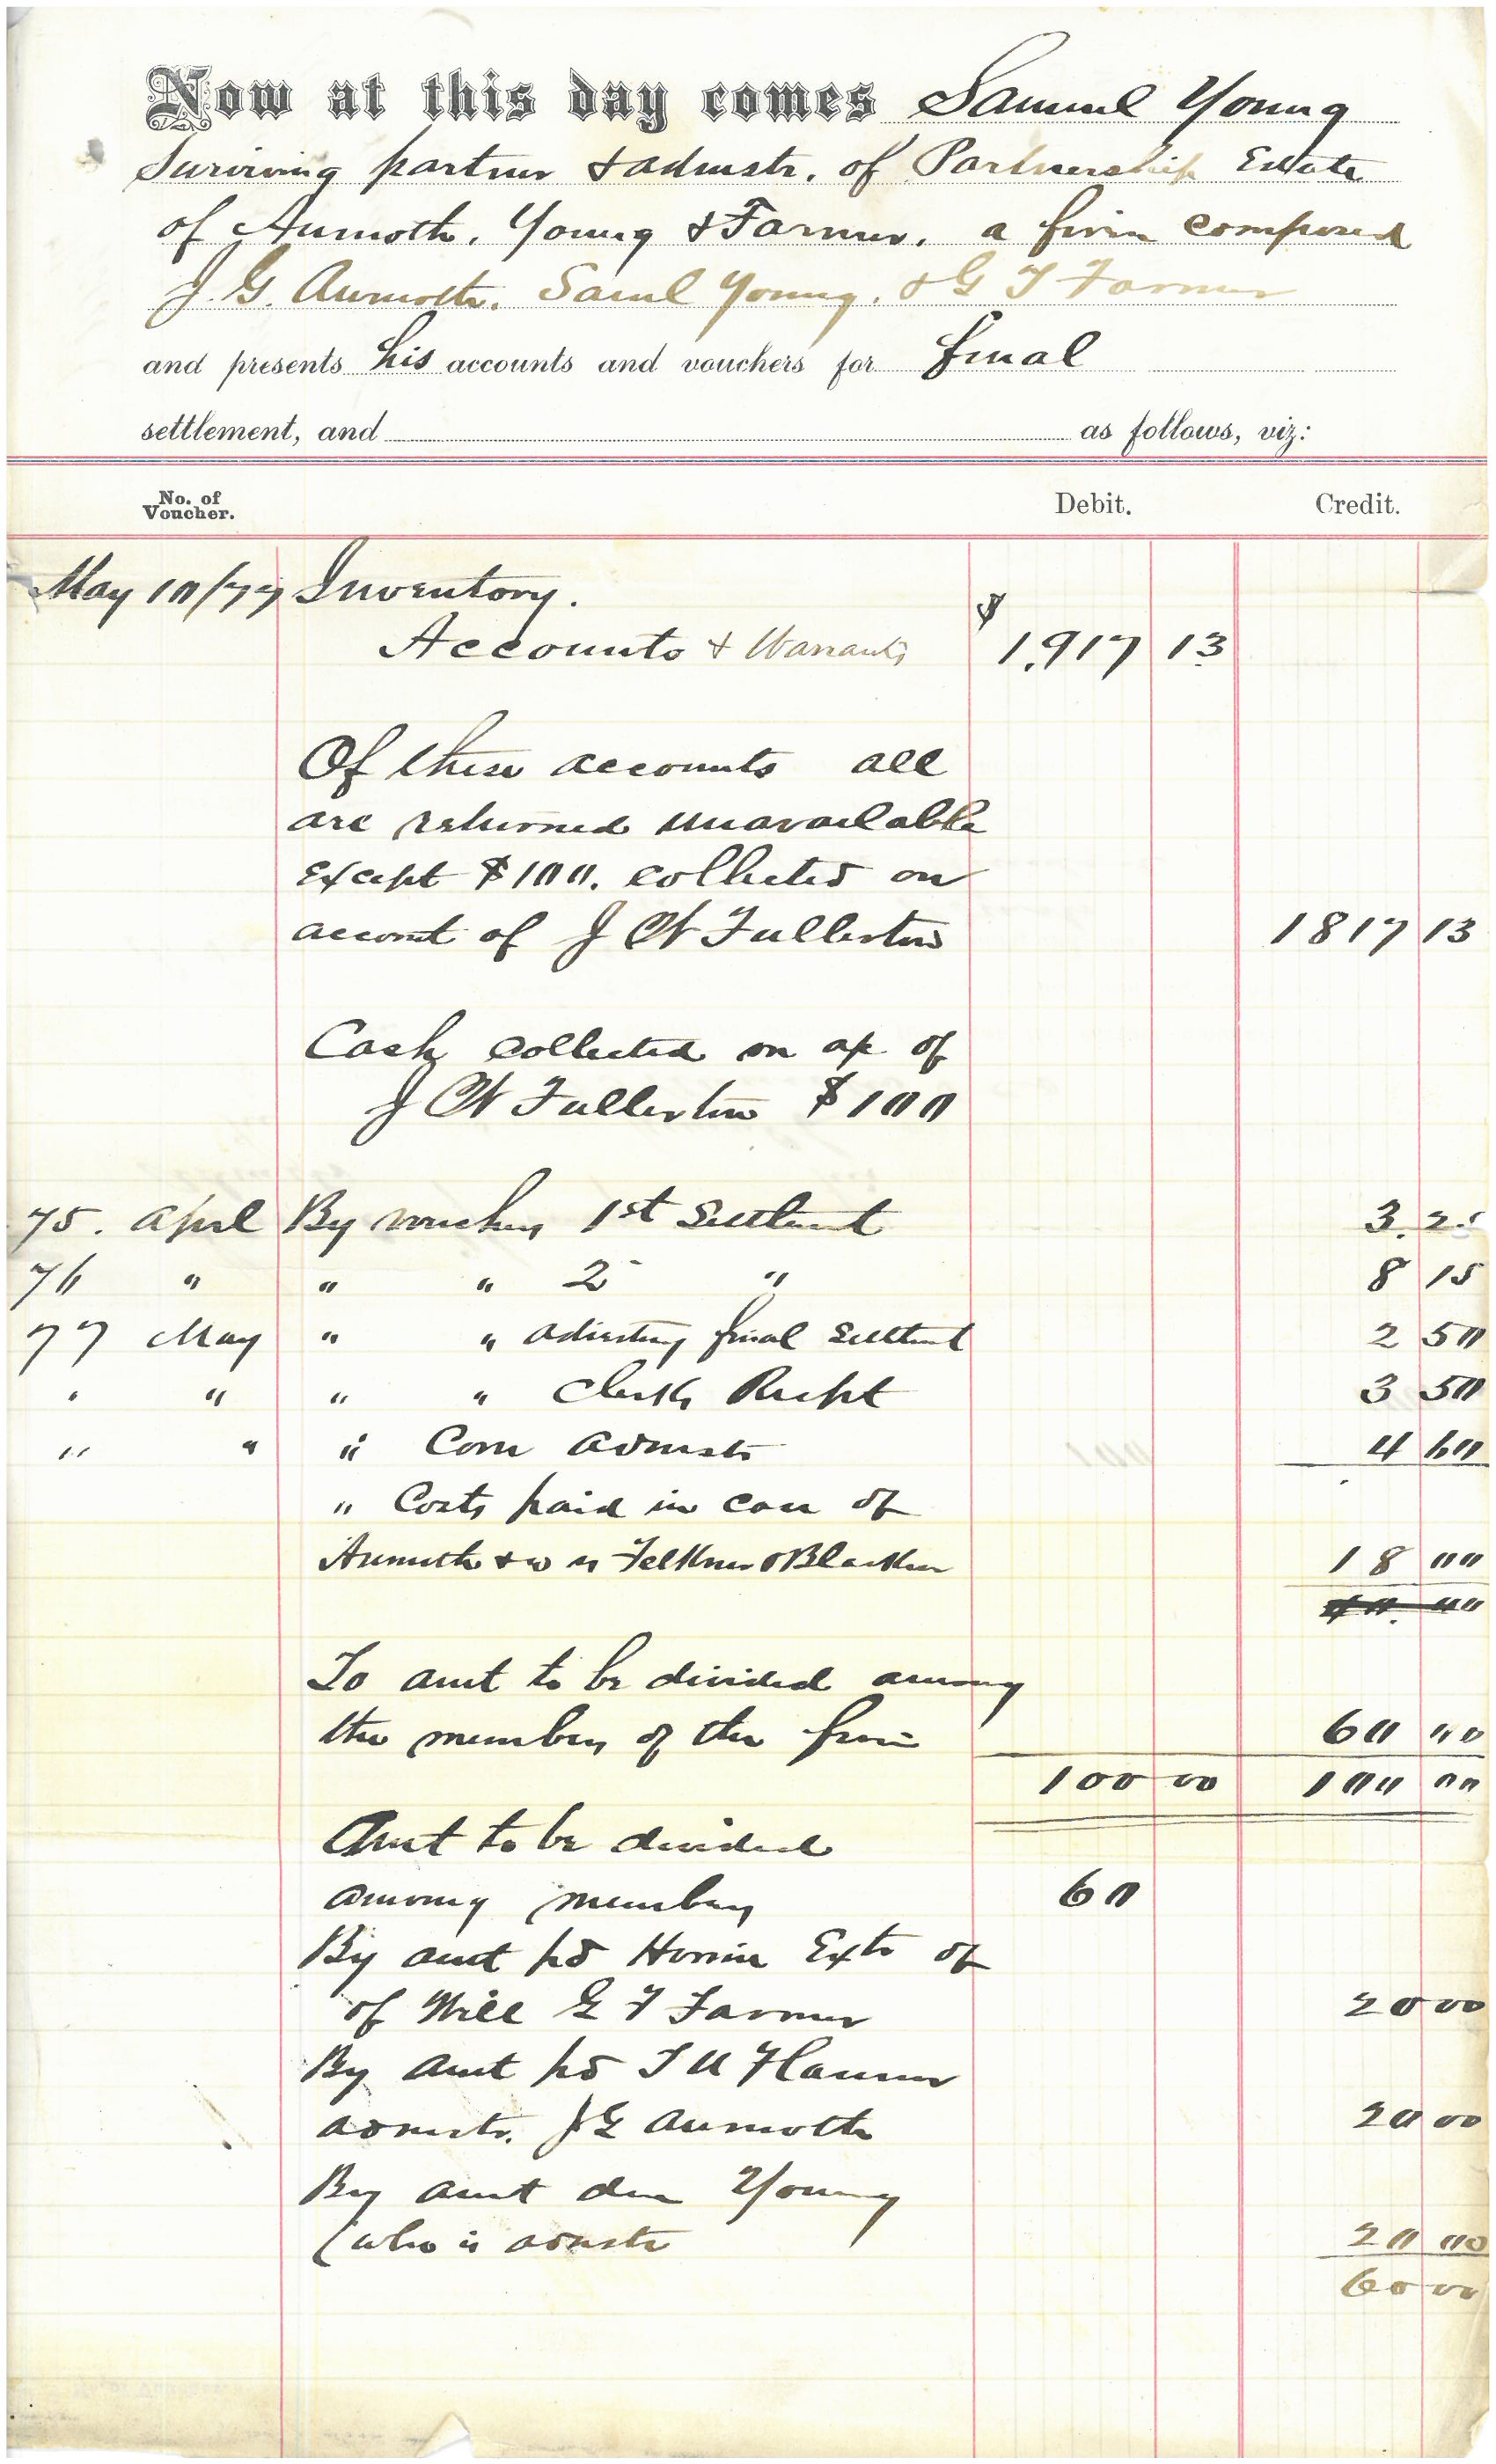 Now at this day comes Samuel Young
Surviving partner & admstr. of Partnership Estate
of Aumoth, Young & Farmer, a firm composed
J. G. Aumoth, Saml Young, & G T Farmer
and presents his accounts and vouchers for final
settlement, and as follows, viz:
No. of Voucher. Debit. Credit.
May 10/77 Inventory.
Accounts & Warrants $1,917 13
Of these accounts all
are returned unavailable
except $100. collected on
account of J W Fullerton 1817 13
Cash collected on ac of
J W Fullerton $100
75. April By vouchers 1st Settlmt 3. 25
76 " " " 2 " 8 15
77 May " " adjusting final Settlmt 2 50
" " " " Clerks Recpt 3 50
" " " Com admstr 4 60
" Costs paid in case of
Aumoth & vs Felkner & Blacker 18 00
40. 00
To amt to be divided among
the members of the firm 60 00
100 00 100 00
Amt to be divided
among members 60
By amt pd Exts of
of Will G T Farmer 20 00
By amt pd
admstr. J G Aumoth 20 00
By amt due Young
(who is admstr 20 00
60 00